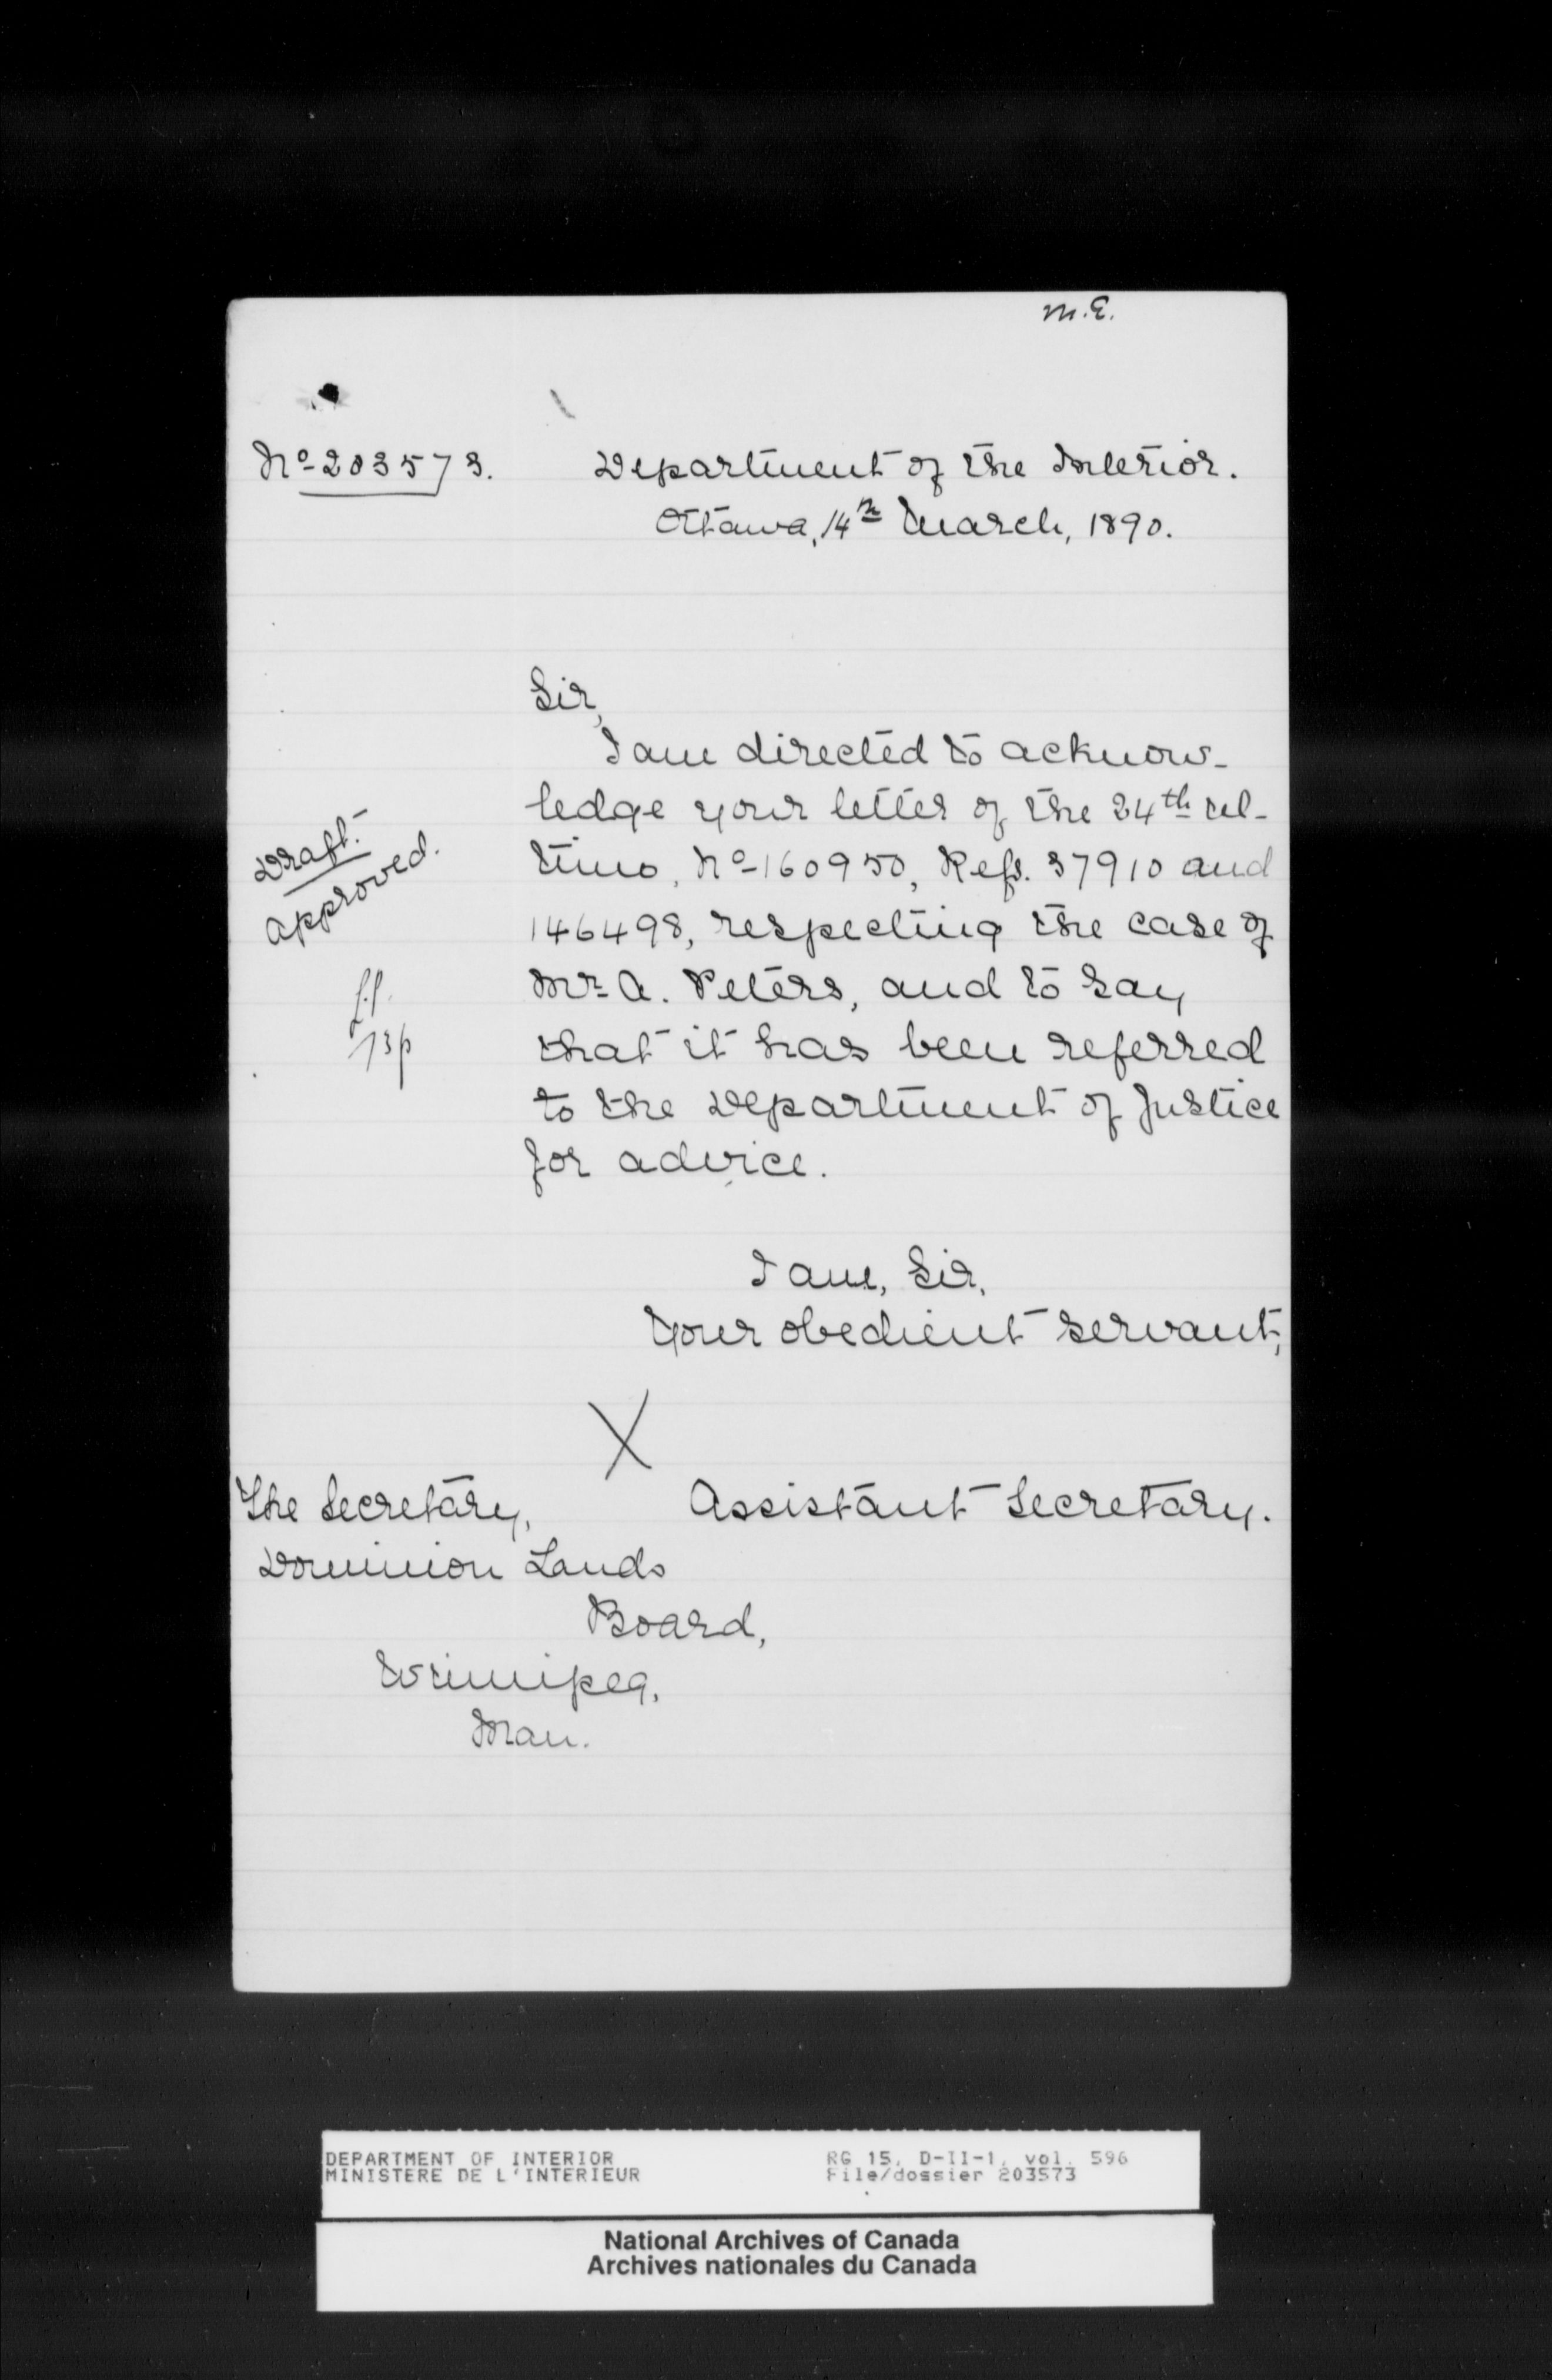 M.E.
No 203573.
Department of the Interior.
Ottawa, 14th March, 1890.
Sir,
I am directed to acknow-
ledge your letter of the 24th ul-
timo, No 160950, Refs. 37910 and
146498, respecting the case of
Mr A. Peters, and to say
that it has been referred
to the Department of Justice
for advice.
Draft.
Approved.
I am, Sir,
Your obedient servant,
X
Assistant Secretary.
The Secretary,
Dominion Lands
Board,
Winnipeg,
Man.
DEPARTMENT OF INTERIOR
MINISTERE DE L'INTERIEUR
RG 15, D-II-1, vol. 596
File/dossier 203573
National Archives of Canada
Archives nationales du Canada